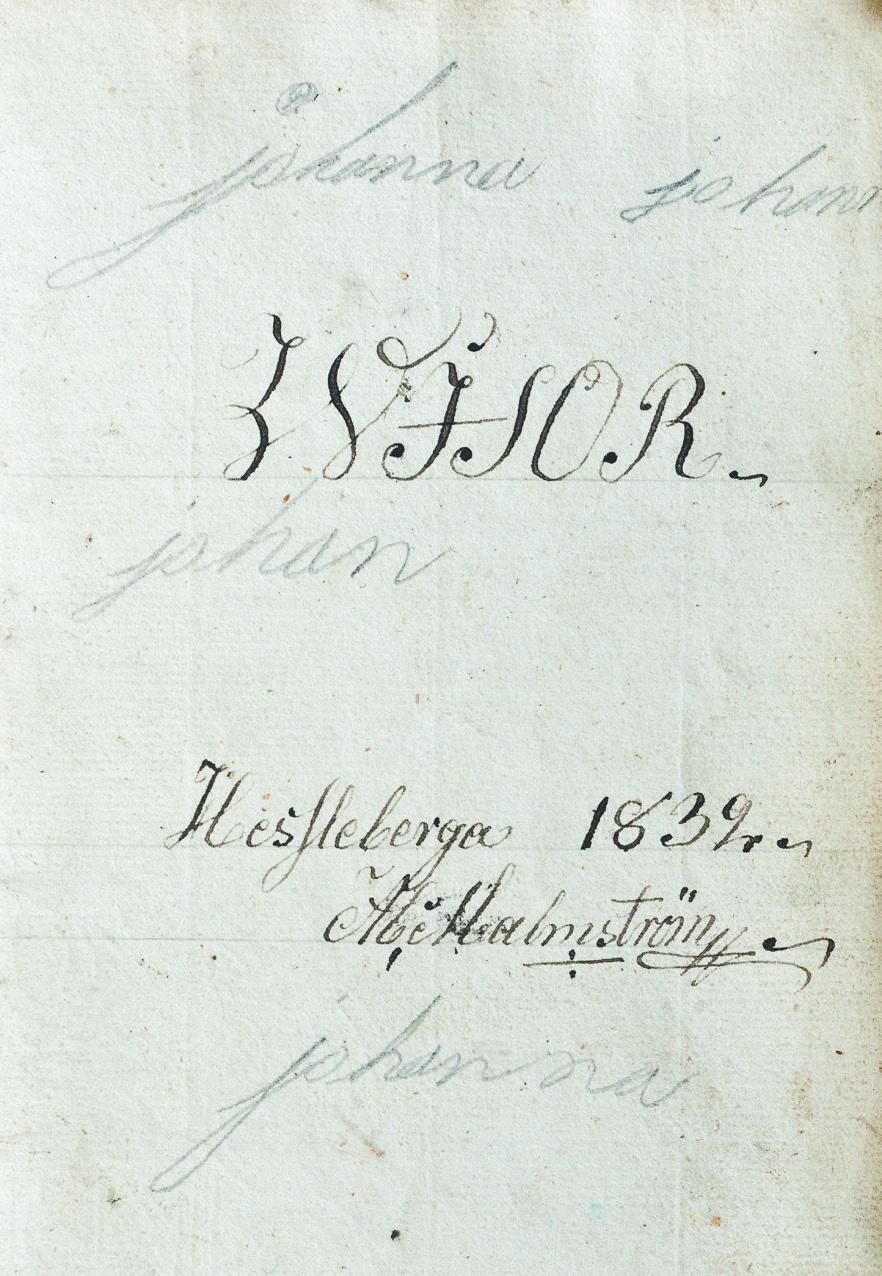 johanna johann
WISOR.
johan
Hessleberga 1839.
Malmström
johanna